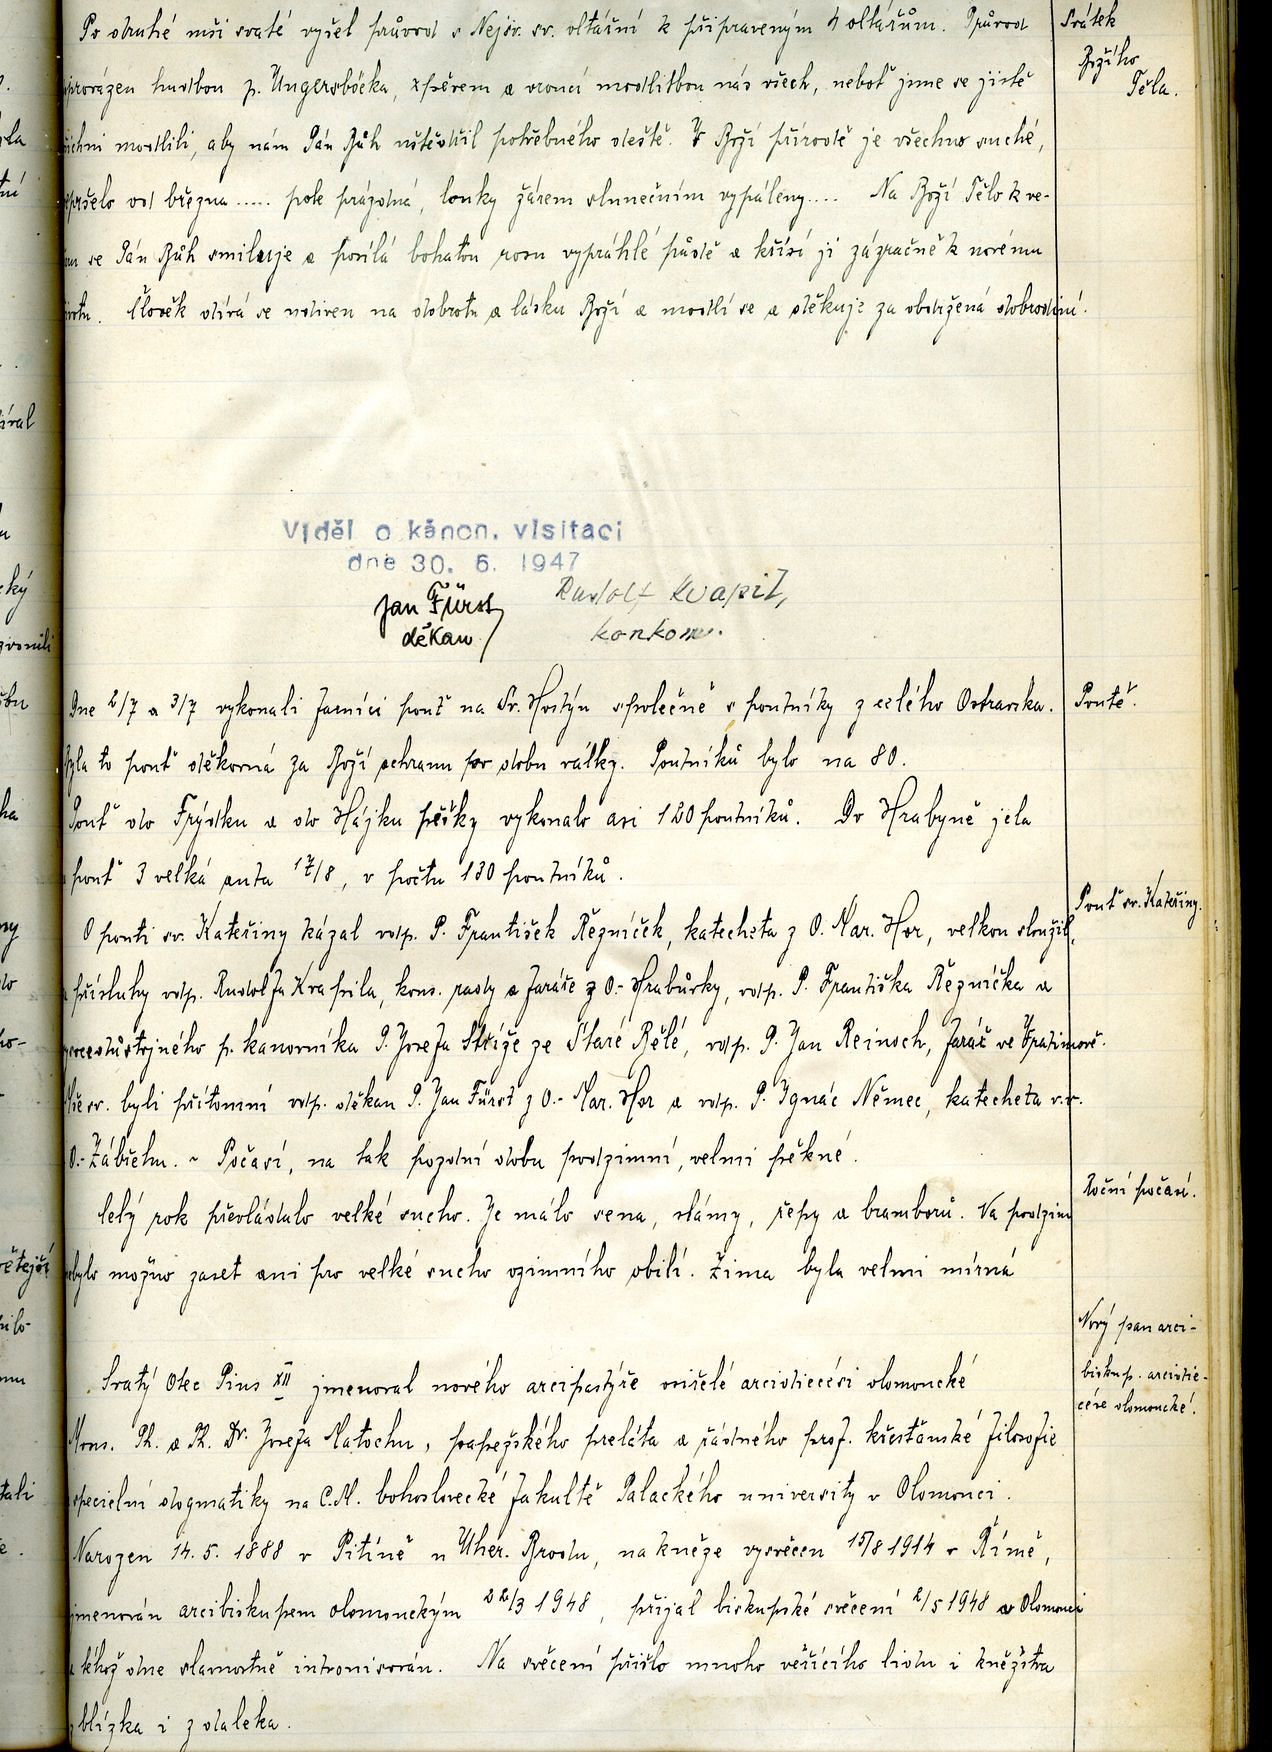 Po druhé mši svaté vyšel průvod s Nejsv. sv. oltářní k připraveným 4 oltářům. Průvod
Svátek
Božího
Těla.
provázen hudbou p. Ungersböcka, zpěvem a vroucí modlitbou nás všech, neboť jsme se jistě
všichni modlili, aby nám Pán Bůh uštědřil potřebného deště. V Boží přírodě je všechno suché,
nepršelo od března..... pole prázdná, louky žárem slunečním vypáleny.... Na Boží Tělo k ve-
se Pán Bůh smiluje a posílá bohatou rosu vyprahlé půdě a křísí ji zázračně k novému
životu. Člověk dívá se udiven na dobrotu a lásku Boží a modlí se a děkuje za obdržená dobrodiní.
Viděl o kánon. visitaci
dne 30. 6. 1947
Jan Fürst
děkan
Rudolf Kvapil,
konkom.
Dne 2/7 a 3/7 vykonali farníci pouť na Sv. Hostýn společně s poutníky z celého Ostravska.
Poutě.
Byla to pouť děkovná za Boží ochranu po dobu války. Poutníků bylo na 80.
Pouť do Frýdku a do Hájku pěšky vykonalo asi 120 poutníků. Do Hrabyně jela
pouť 3 velká auta 17/8, v počtu 130 poutníků.
Pouť sv. Kateřiny.
O pouti sv. Kateřiny kázal vdp. P. František Řezníček, katecheta z O. Mar. Hor, velkou sloužil,
přísluhy vdp. Rudolfa Kvapila, kons. rady a faráře z O.- Hrabůvky, vdp. P. Františka Řezníčka a
p. kanovníka P. Josefa Stříže ze Staré Bělé, vdp. P. Jan Reinoch, farář ve Vratimově.
Mše sv. byli přítomni vdp. děkan P. Jan Fürst z O.- Mar. Hor a vdp. P. Ignác Němec, katecheta v.v.
O.- Zábřehu. ~ Počasí, na tak pozdní dobu podzimní, velmi pěkné.
Roční počasí.
Celý rok převládalo velké sucho. Je málo sena, slámy, řepy a bramborů. Na podzim
nebylo možno zaset ani pro velké sucho ozimního obilí. Zima byla velmi mírná
Nový pan arci-
biskup. arcidie-
cése olomoucké.
Svatý Otec Pius XII jmenoval nového arcipastýře osiřelé arcidiecési olomoucké
Mons. Th. a Ph. Dr. Josefa Matochu, papežského preláta a řádného prof. křesťanské filosofie
specielní dogmatiky na C.M. bohoslovecké fakultě Palackého university v Olomouci.
Narozen 14. 5. 1888 v Pitíně u Uher. Brodu, na kněze vysvěcen 15/8 1914 v Římě,
jmenován arcibiskupem olomouckým 22/3 1948, přijal biskupské svěcení 2/5 1948 v Olomouci
a téhož dne slavnostně intronisován. Na svěcení přišlo mnoho věřícího lidu i kněžstva
z blízka i z daleka.